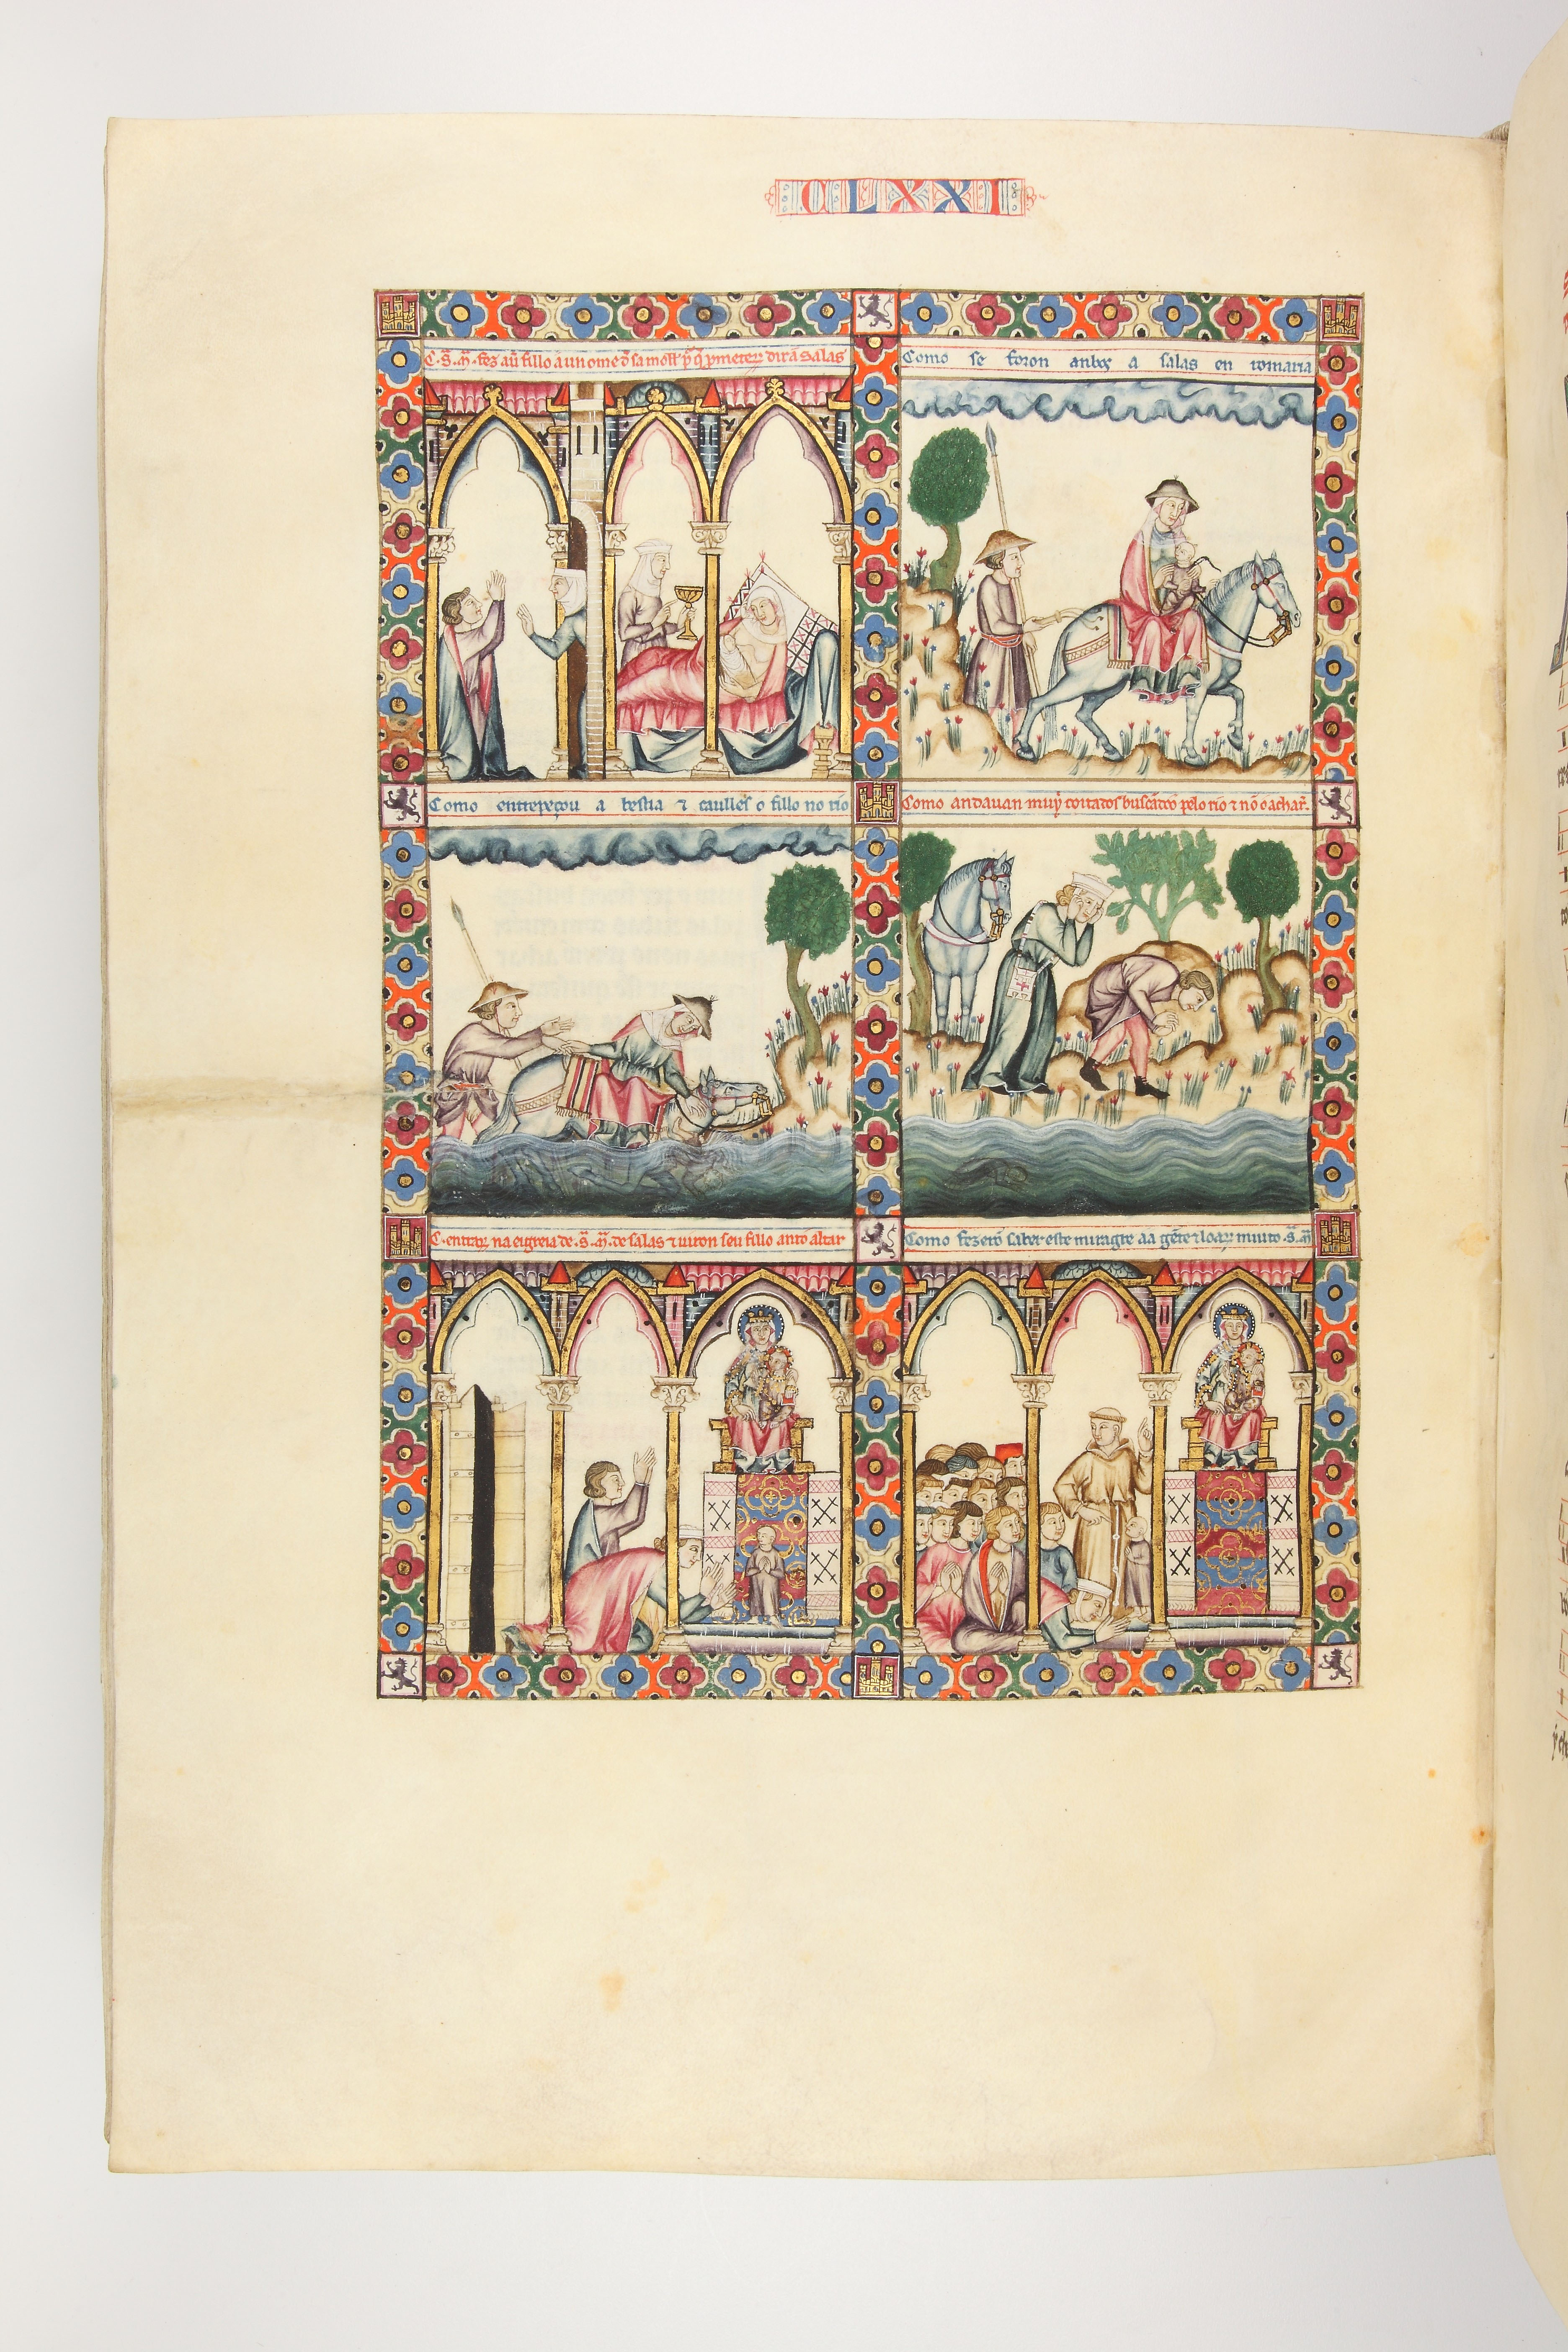 CLXXI
C. S. M̃. fez auer fillo a un ome ⁊ sa moller p̃ q̃ prometerõ dir a Salas
Como se foron anbos a salas en romaria
Como entrepeçou a bestia ⁊ caeulles o fillo no rio
Como andauan muy coitados buscãdoo pelo rio ⁊ nõ o achar̃.
C. entrarõ na eigreia de. S. M̃. de salas ⁊ uiron seu fillo anto altar
Como fezerõ saber este miragre aa gẽte ⁊ loarõ muito. S. M̃